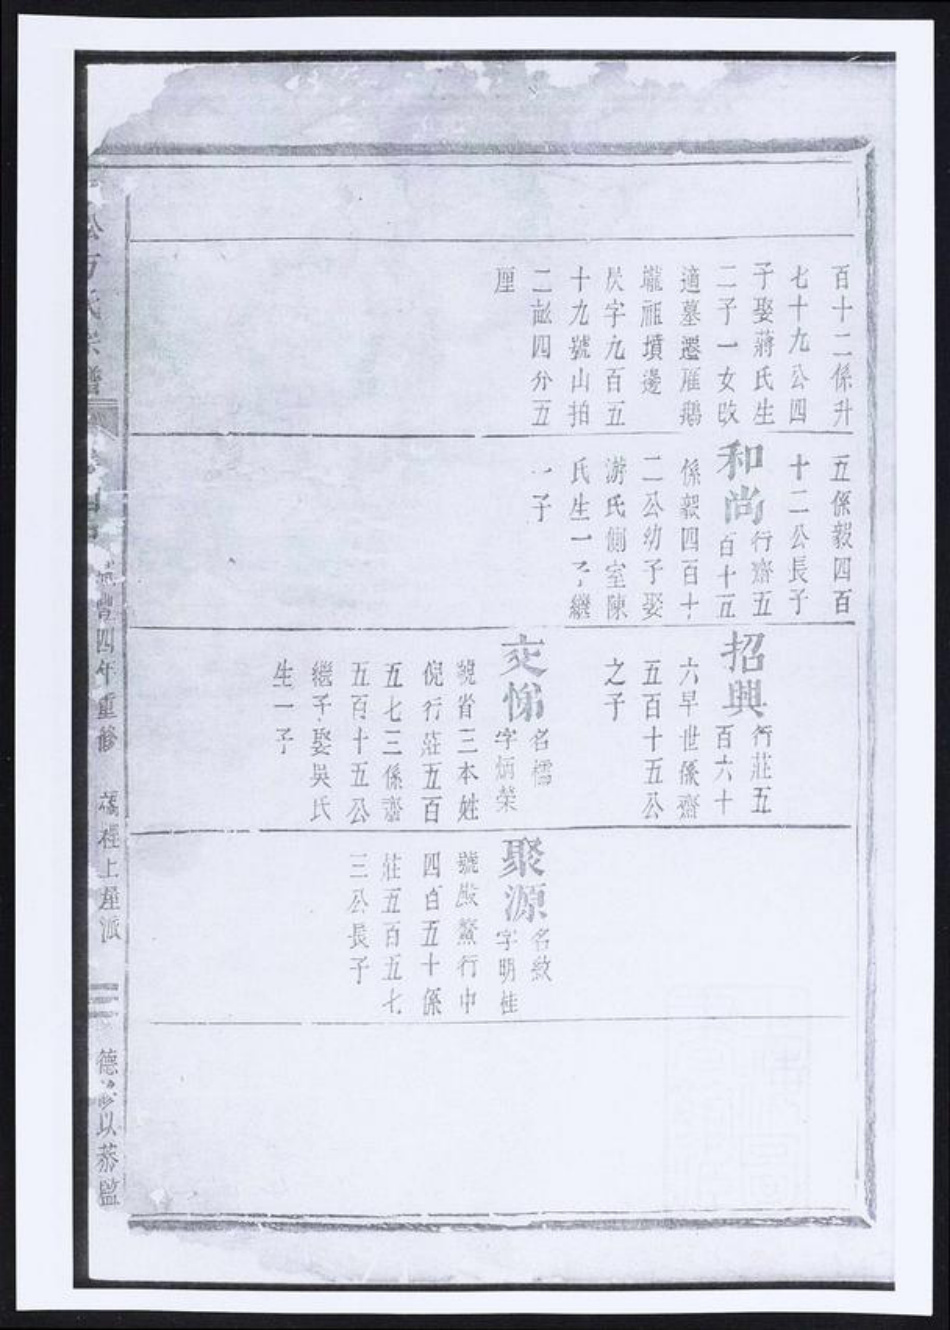 百十二係升
七十九公四
子娶蔣氏生
二子一女改
適墓遷雁鵝
壠祖墳邊
字九百五
十九號山拍
二畝四分五
厘
五係毅四百
十二公長子
和尚行齋五
百十五
係毅四百十
二公幼子娶
游氏側室陳
氏生一子繼
一子
招興行莊五
百六十
六早世係齋
五百十五公
之子
交悌名檽
字炳榮
號省三本姓
倪行莊五百
五七三係齋
五百十五公
繼子娶吳氏
生一子
聚源名
字明桂
號殿鰲行中
四百五十係
莊五百五七
三公長子
氏宗譜
豐四年重修
上屋派
德 以恭監